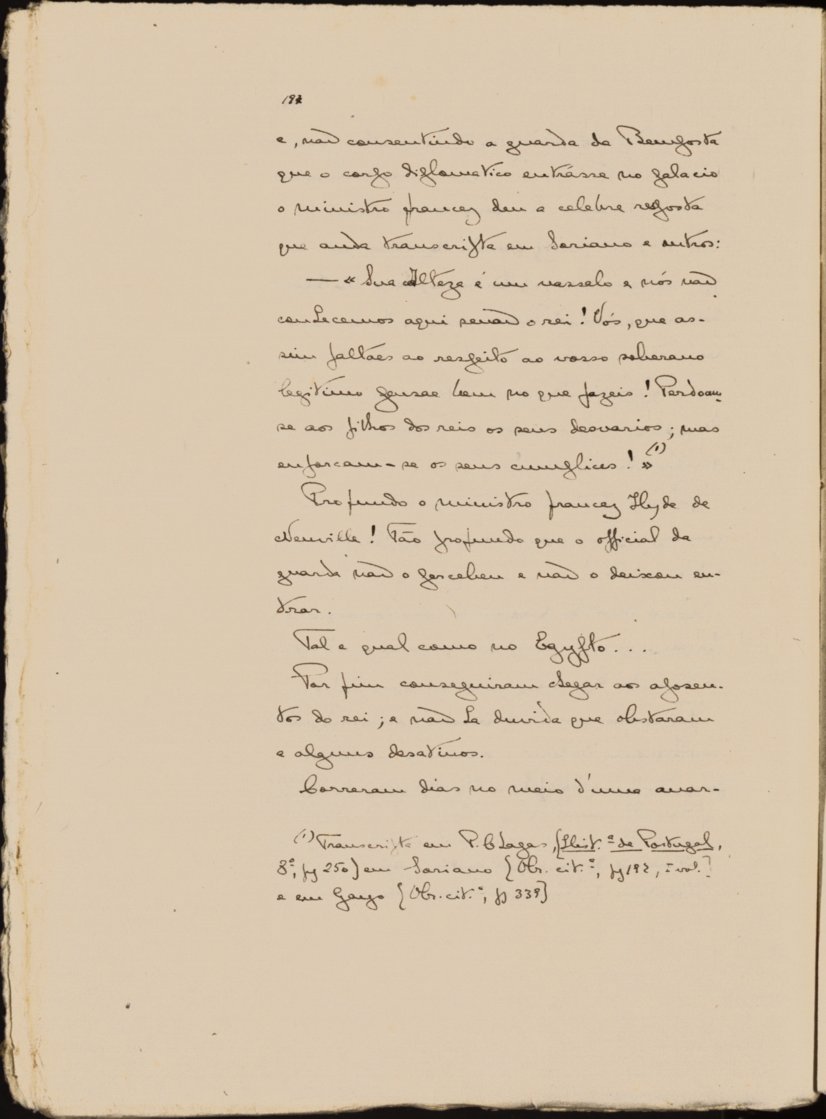 e, não consentindo a guarda da Bemposta
que o corpo diplomatico entrásse no palacio
o ministro francez deu a celebre resposta
que anda transcripta em Soriano e outros:
— « Sua Alteza é um vassalo e nós não
conhecemos aqui senão o rei! Vós, que as-
sim faltáes ao respeito ao vosso soberano
legitimo pensae bem no que fazeis! Perdoam-
se aos filhos dos reis os seus desvarios; mas
enforcam-se os seus cumplices! » (1)
Profundo o ministro francez Hyde de
Neuville! Tão profundo que o official da
guarda não o percebeu e não o deixou en-
trar.
Tal e qual como no Egypto...
Por fim conseguiram chegar aos aposen-
tos do rei; e não ha duvida que obstaram
a alguns desatinos.
Correram dias no meio d'uma anar-
(1) Transcripta em P. Chagas, [Hist.ª de Portugal,
8º, pg 250] em Soriano [Obr. cit.ª, pg 192, I vol.]
e em Gayo [Obr. cit.ª, pg 339]